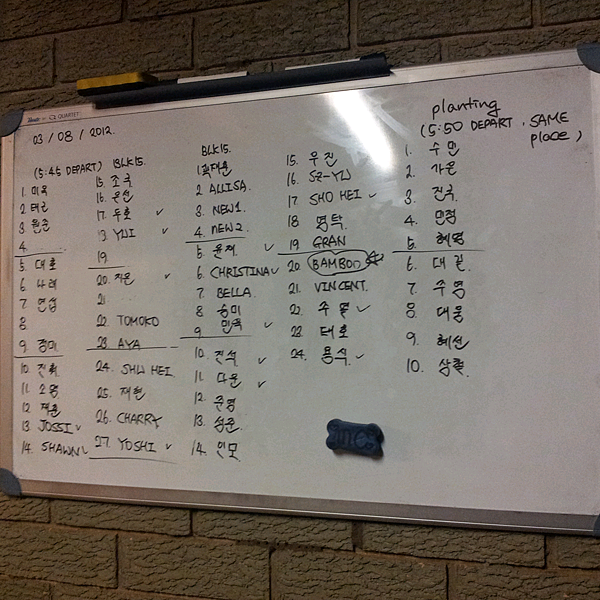 QUARTET
03 / 08 / 2012.
(5:45 DEPART) BLK15.
1. 미옥
2. 태근
3. 원준
4.
5. 대호
6. 나래
7. 연섭
8
9. 경미
10. 진희
11.
12
13 JOSSI ✓
14. SHAWN ✓
15. 조국
16. 은선
17. 두호 ✓
18. YUI ✓
19
20. 지은 ✓
21
22. TOMOKO
23. AYA
24. SHU HEI
25. 재현
26. CHARRY
27. YOSHI ✓
BLK15.
1.
2 ALLISA.
3. NEW1.
4. NEW2.
5. 윤재 ✓
6. CHRISTINA ✓
7. BELLA.
8 승미
9 민욱 ✓
10. 진석 ✓
11. 다운 ✓
12. 준영
13. 성준
14. 인모
15. 우진
16. SZ-YU
17 SHO HEI ✓
18 명탁
19 GRAN
20. BAMBOO
21. VINCENT.
22. 주열 ✓
23. 태호
24. 용식 ✓
planting
(5:50 DEPART, SAME place)
1. 수민
2. 가은
3. 진욱
4. 민정
5. 혜영
6. 대근
7. 주영
8. 대웅
9. 혜선
10. 상훈